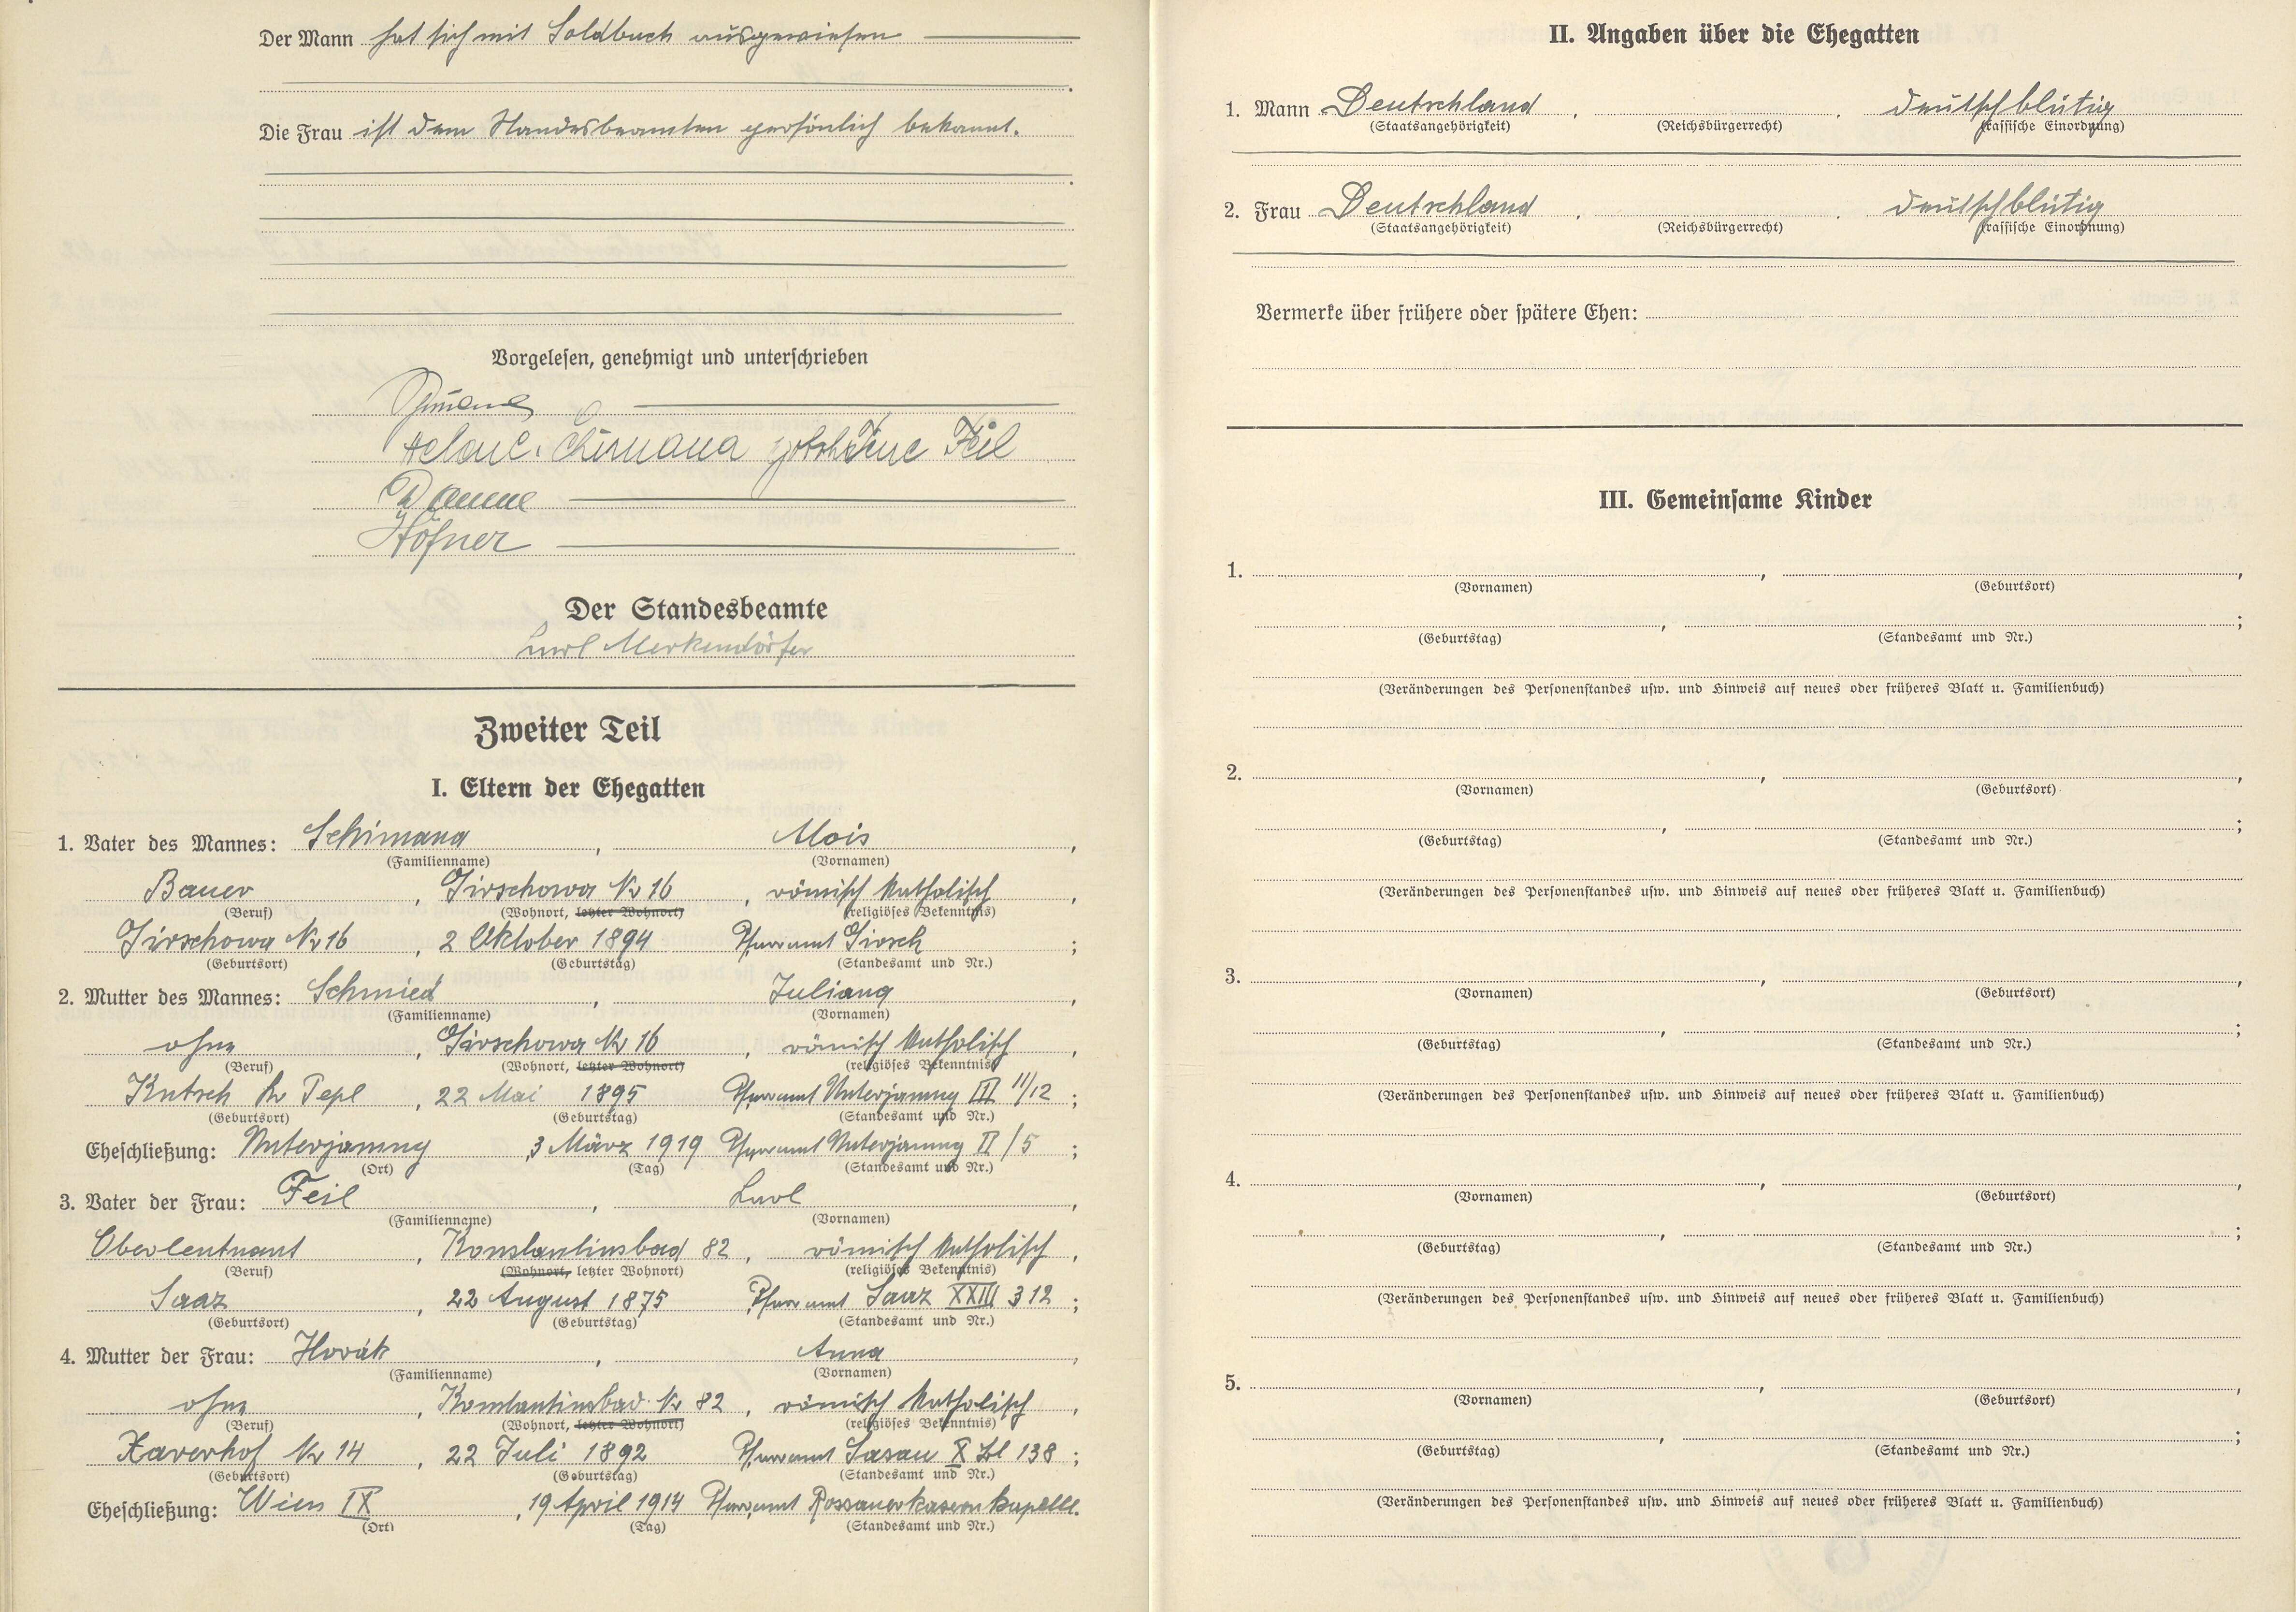 Der Mann hat sich mit Soldbuch ausgewiesen
Die Frau ist dem Standesbeamten persönlich bekannt.
Vorgelesen, genehmigt und unterschrieben
Helene Schimana geborene Feil
Höfner
Der Standesbeamte
Karl Merkendörfer
Zweiter Teil
I. Eltern der Ehegatten
1. Vater des Mannes: Schimana, Alois,
(Familienname) (Vornamen)
Bauer, Girschowa Nr 16, römisch katholisch,
(Beruf) (Wohnort, letzter Wohnort) (religiöses Bekenntnis)
Girschowa Nr 16, 2 Oktober 1894 Pfarramt Girsch;
(Geburtsort) (Geburtstag) (Standesamt und Nr.)
2. Mutter des Mannes: Schmied, Juliana,
(Familienname) (Vornamen)
ohne, Girschowa Nr 16, römisch katholisch,
(Beruf) (Wohnort, letzter Wohnort) (religiöses Bekenntnis)
Kutsch Kr Tepl, 22 Mai 1895 Pfarramt Unterjamny III 11/12;
(Geburtsort) (Geburtstag) (Standesamt und Nr.)
Eheschließung: Unterjamny, 3 März 1919 Pfarramt Unterjamny II/5;
(Ort) (Tag) (Standesamt und Nr.)
3. Vater der Frau: Feil, Karl,
(Familienname) (Vornamen)
Oberleutnant, Konstantinsbad 82, römisch katholisch,
(Beruf) (Wohnort, letzter Wohnort) (religiöses Bekenntnis)
Saaz, 22 August 1875 Pfarramt Saaz XXIII 312;
(Geburtsort) (Geburtstag) (Standesamt und Nr.)
4. Mutter der Frau: Horák, Anna,
(Familienname) (Vornamen)
ohne, Konstantinsbad Nr 82, römisch katholisch,
(Beruf) (Wohnort, letzter Wohnort) (religiöses Bekenntnis)
Xaverhof Nr 14, 22 Juli 1892 Pfarramt Sasau X Bl 138;
(Geburtsort) (Geburtstag) (Standesamt und Nr.)
Eheschließung: Wien IX, 19 April 1914 Pfarramt Rossauerkasernkapelle.
(Ort) (Tag) (Standesamt und Nr.)
II. Angaben über die Ehegatten
1. Mann Deutschland, . deutschblütig
(Staatsangehörigkeit) (Reichsbürgerrecht) (rassische Einordnung)
2. Frau Deutschland . . deutschblütig
(Staatsangehörigkeit) (Reichsbürgerrecht) (rassische Einordnung)
Vermerke über frühere oder spätere Ehen:
III. Gemeinsame Kinder
1. , ,
(Vornamen) (Geburtsort)
, ;
(Geburtstag) (Standesamt und Nr.)
(Veränderungen des Personenstandes usw. und Hinweis auf neues oder früheres Blatt u. Familienbuch)
2. , ,
(Vornamen) (Geburtsort)
, ;
(Geburtstag) (Standesamt und Nr.)
(Veränderungen des Personenstandes usw. und Hinweis auf neues oder früheres Blatt u. Familienbuch)
3. , ,
(Vornamen) (Geburtsort)
, ;
(Geburtstag) (Standesamt und Nr.)
(Veränderungen des Personenstandes usw. und Hinweis auf neues oder früheres Blatt u. Familienbuch)
4. , ,
(Vornamen) (Geburtsort)
, ;
(Geburtstag) (Standesamt und Nr.)
(Veränderungen des Personenstandes usw. und Hinweis auf neues oder früheres Blatt u. Familienbuch)
5. , ,
(Vornamen) (Geburtsort)
, ;
(Geburtstag) (Standesamt und Nr.)
(Veränderungen des Personenstandes usw. und Hinweis auf neues oder früheres Blatt u. Familienbuch)